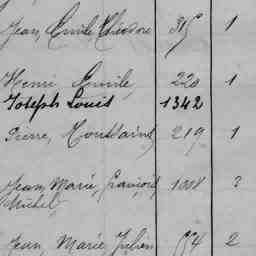 Jean, Emile, Théodore 315 1
Henri Emile 220 1
Joseph Louis 1342
Pierre, Toussaint 219 1
Jean, Marie, François 1008 3
Michel
Jean, Marie, Julien 554 2